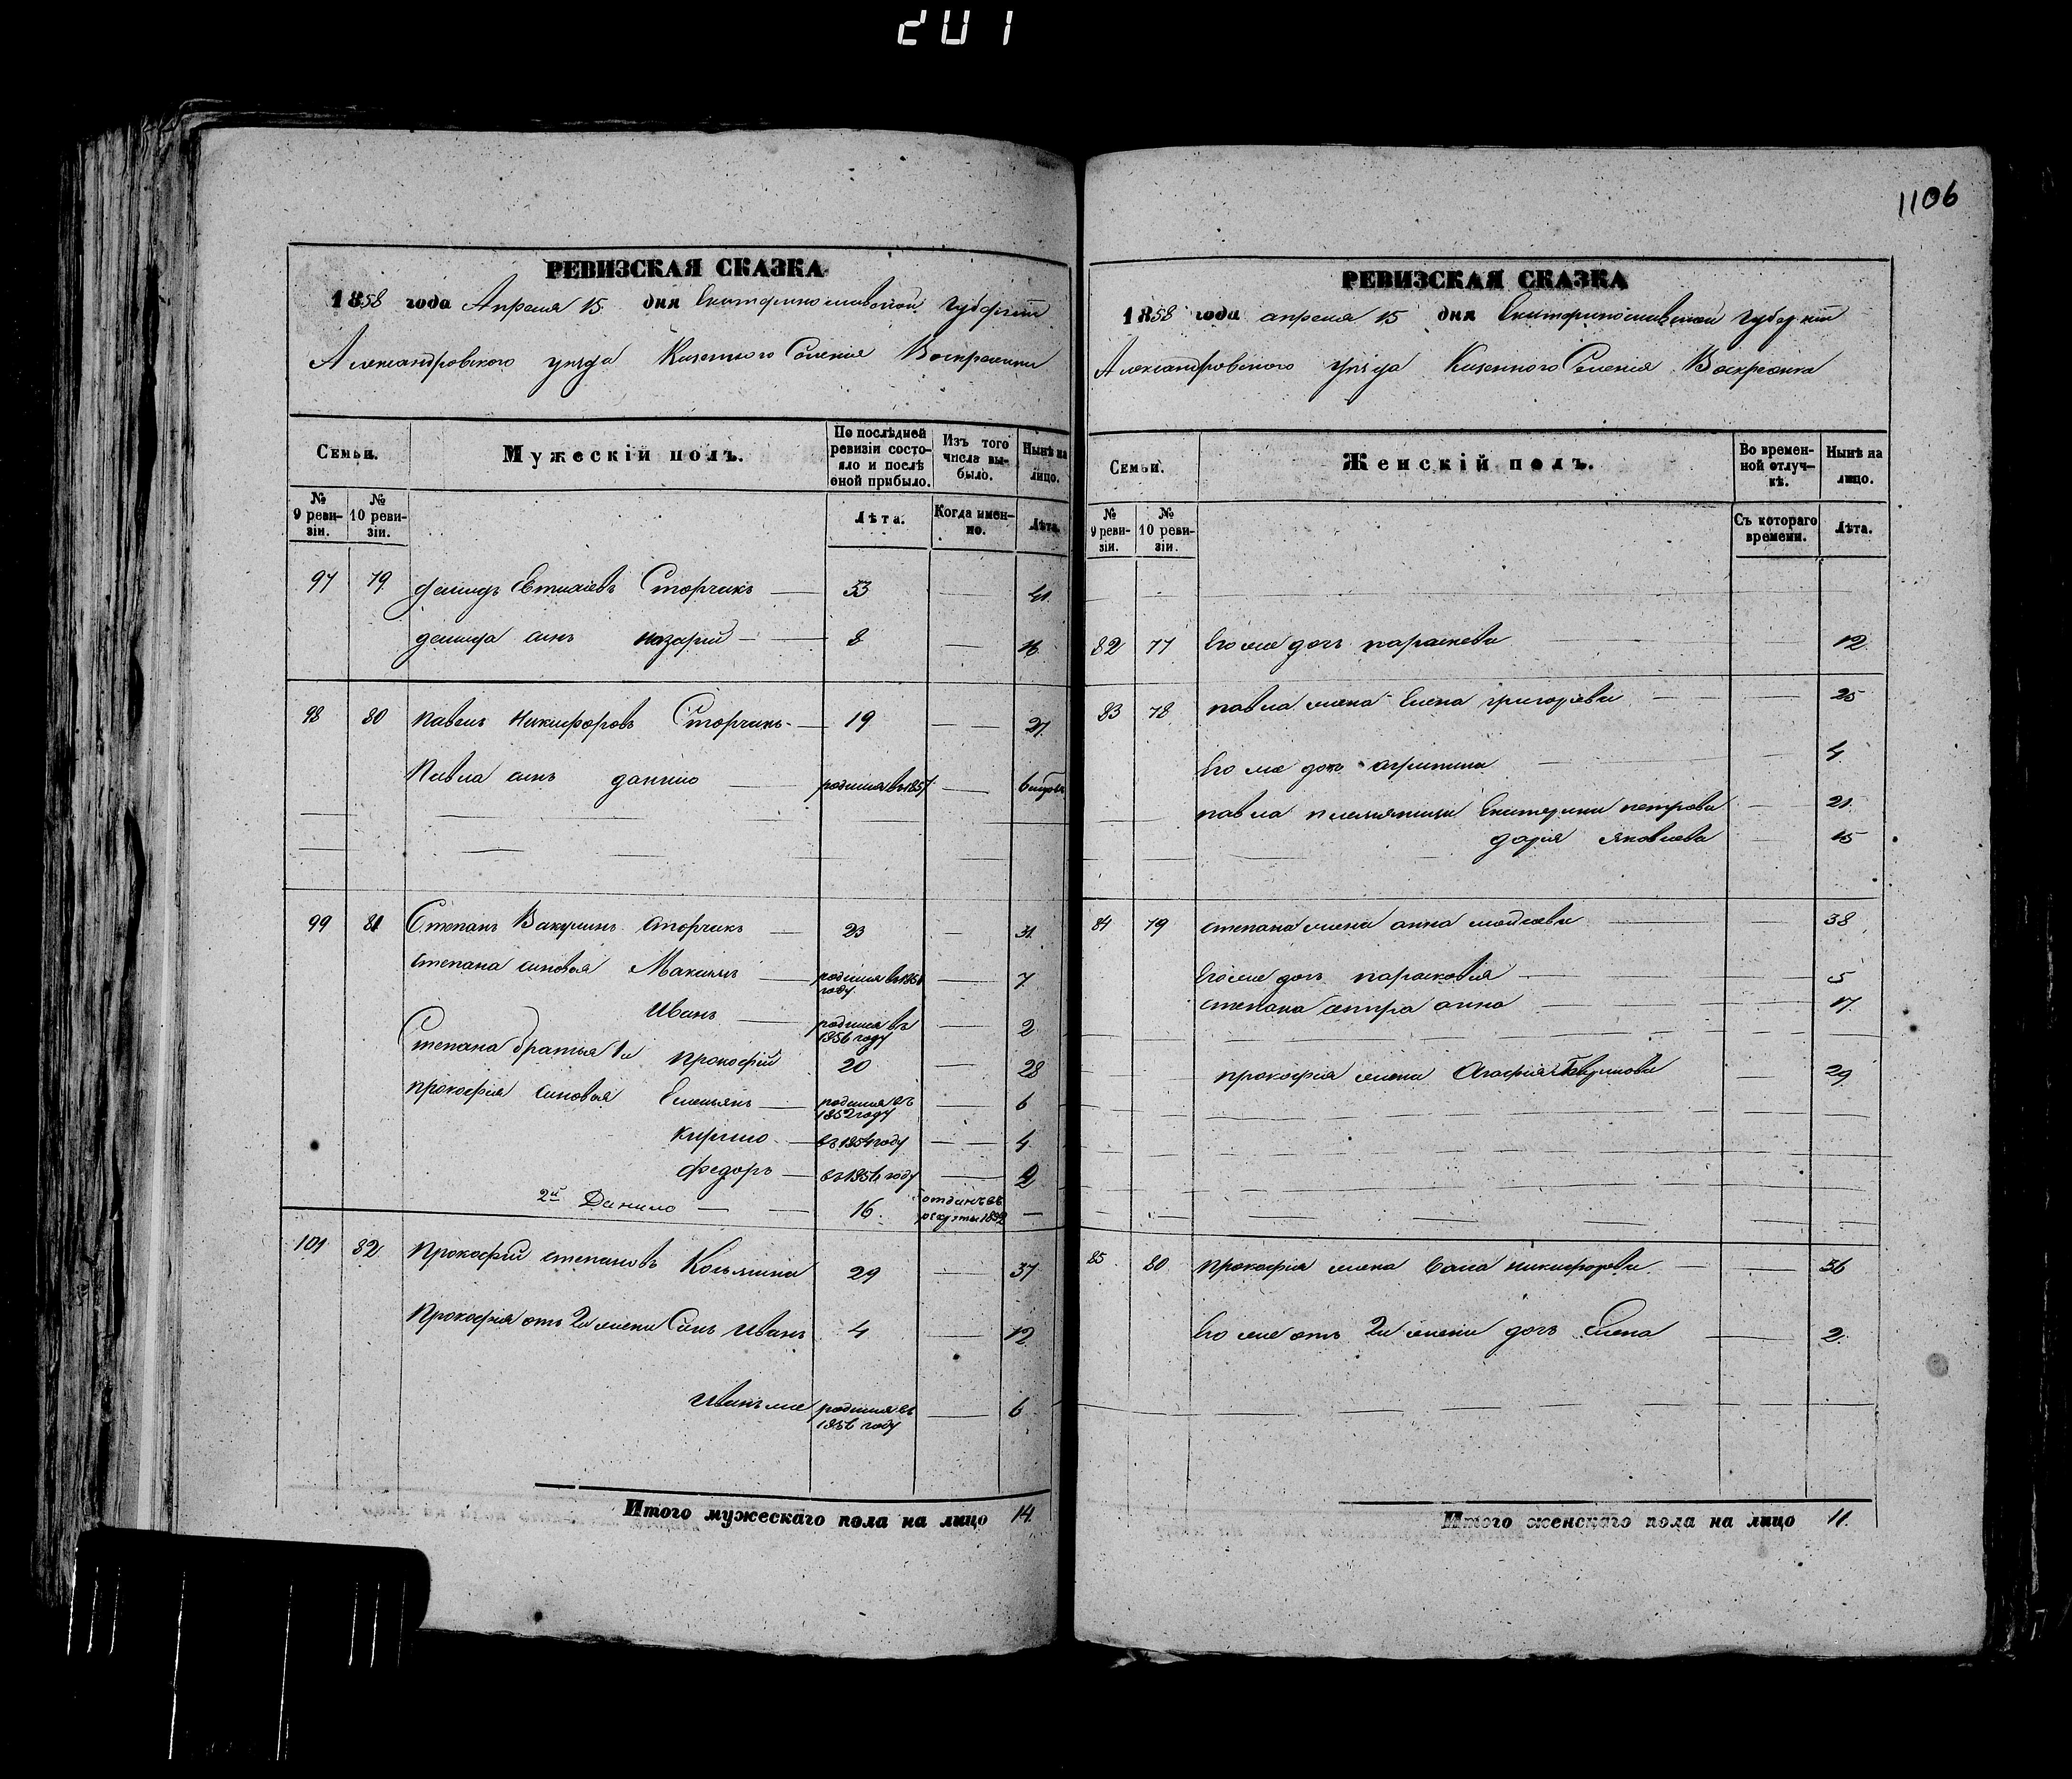 201
1106
РЕВИЗСКАЯ СКАЗКА
1858 года Апреля 15 дня Екатеринославской Губернии
Александровского уезда Казенного Селения Воскресенки
Семьи.
Мужескій полъ.
По послѣдней ревизіи состояло и послѣ оной прибыло.
Изъ того числа выбыло.
Нынѣ на лицо.
№ 9 ревизіи.
№ 10 ревизіи.
Лѣта.
Когда именно.
Лѣта.
97 79 демидъ Сторчакъ — 33 — 41
демида синъ назарій — 8 — 16
98 80 павелъ никифоровъ Сторчакъ — 19 — 27
Павла синъ данило — родился въ 1857 —
99 81 Степанъ Вакулинъ сторчакъ — 23 — 31
степана синовья Максимъ — родился въ году — 7
Иванъ — родился въ 1856 году — 2
Степана братья 1й прокофій 20 — 28
прокофія синовья Емельянъ — родился въ 1852 году — 6
кирило — въ 1854 году — 4
федоръ — въ 1856 году — 2
2й Данило — 16 отданъ въ рекруты 1852 —
101 82 Прокофій степановъ 29 — 37
Прокофия отъ 2й жени Синъ иванъ 4 — 12
Иванъ же родился въ году — 6
Итого мужескаго пола на лицо 14
РЕВИЗСКАЯ СКАЗКА
1858 года апреля 15 дня Екатеринославской губернии
Александровского уезда Казенного Селения Воскресенка
Семьи.
Женскій полъ.
Во временной отлучкѣ.
Нынѣ на лицо.
№ 9 ревизіи.
№ 10 ревизіи.
Съ котораго времени.
Лѣта.
82 77 Его же дочь параскева 12
83 78 павла жена Елена григорева — 25
Его же дочь — 4
павла племяници Екатерина петрова — 21
дария яковлева — 15
84 79 степана жена анна — 38
Его же дочь парасковия — 5
степана сестра анна — 17
прокофія жена Агафия — 29
85 80 прокофия жена никифорова — 36
Его же отъ 2й жени дочь Елена — 2
Итого женскаго пола на лицо 11